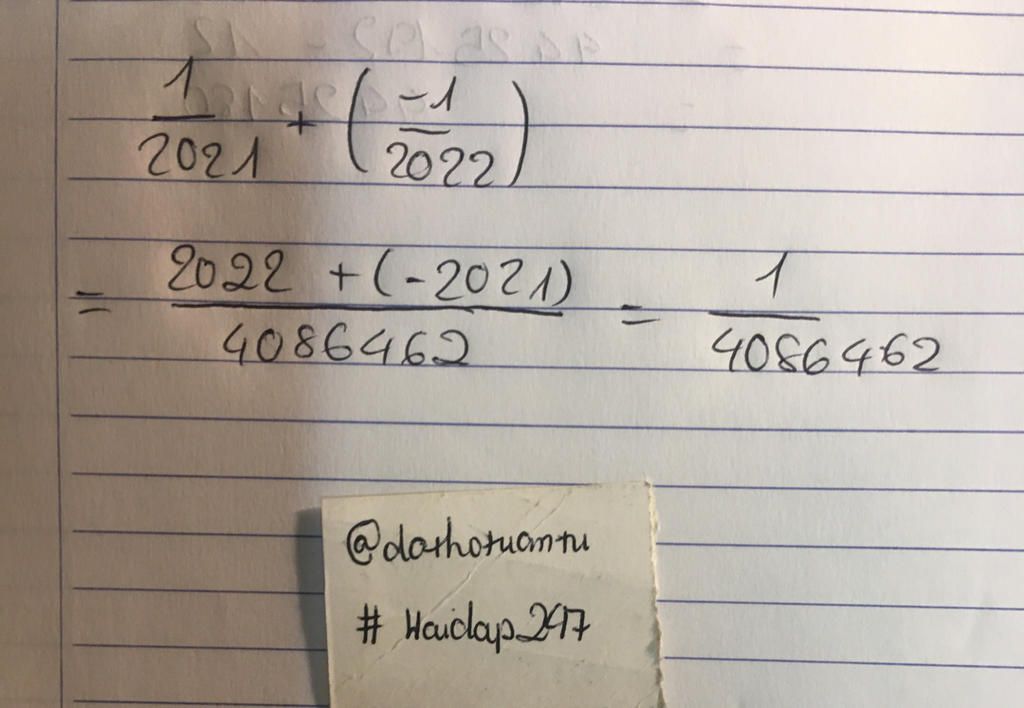 1/2021 + (-1/2022)
= 2022 + (-2021)/4086462 = 1/4086462
@dothotuantu
# Hoidap247